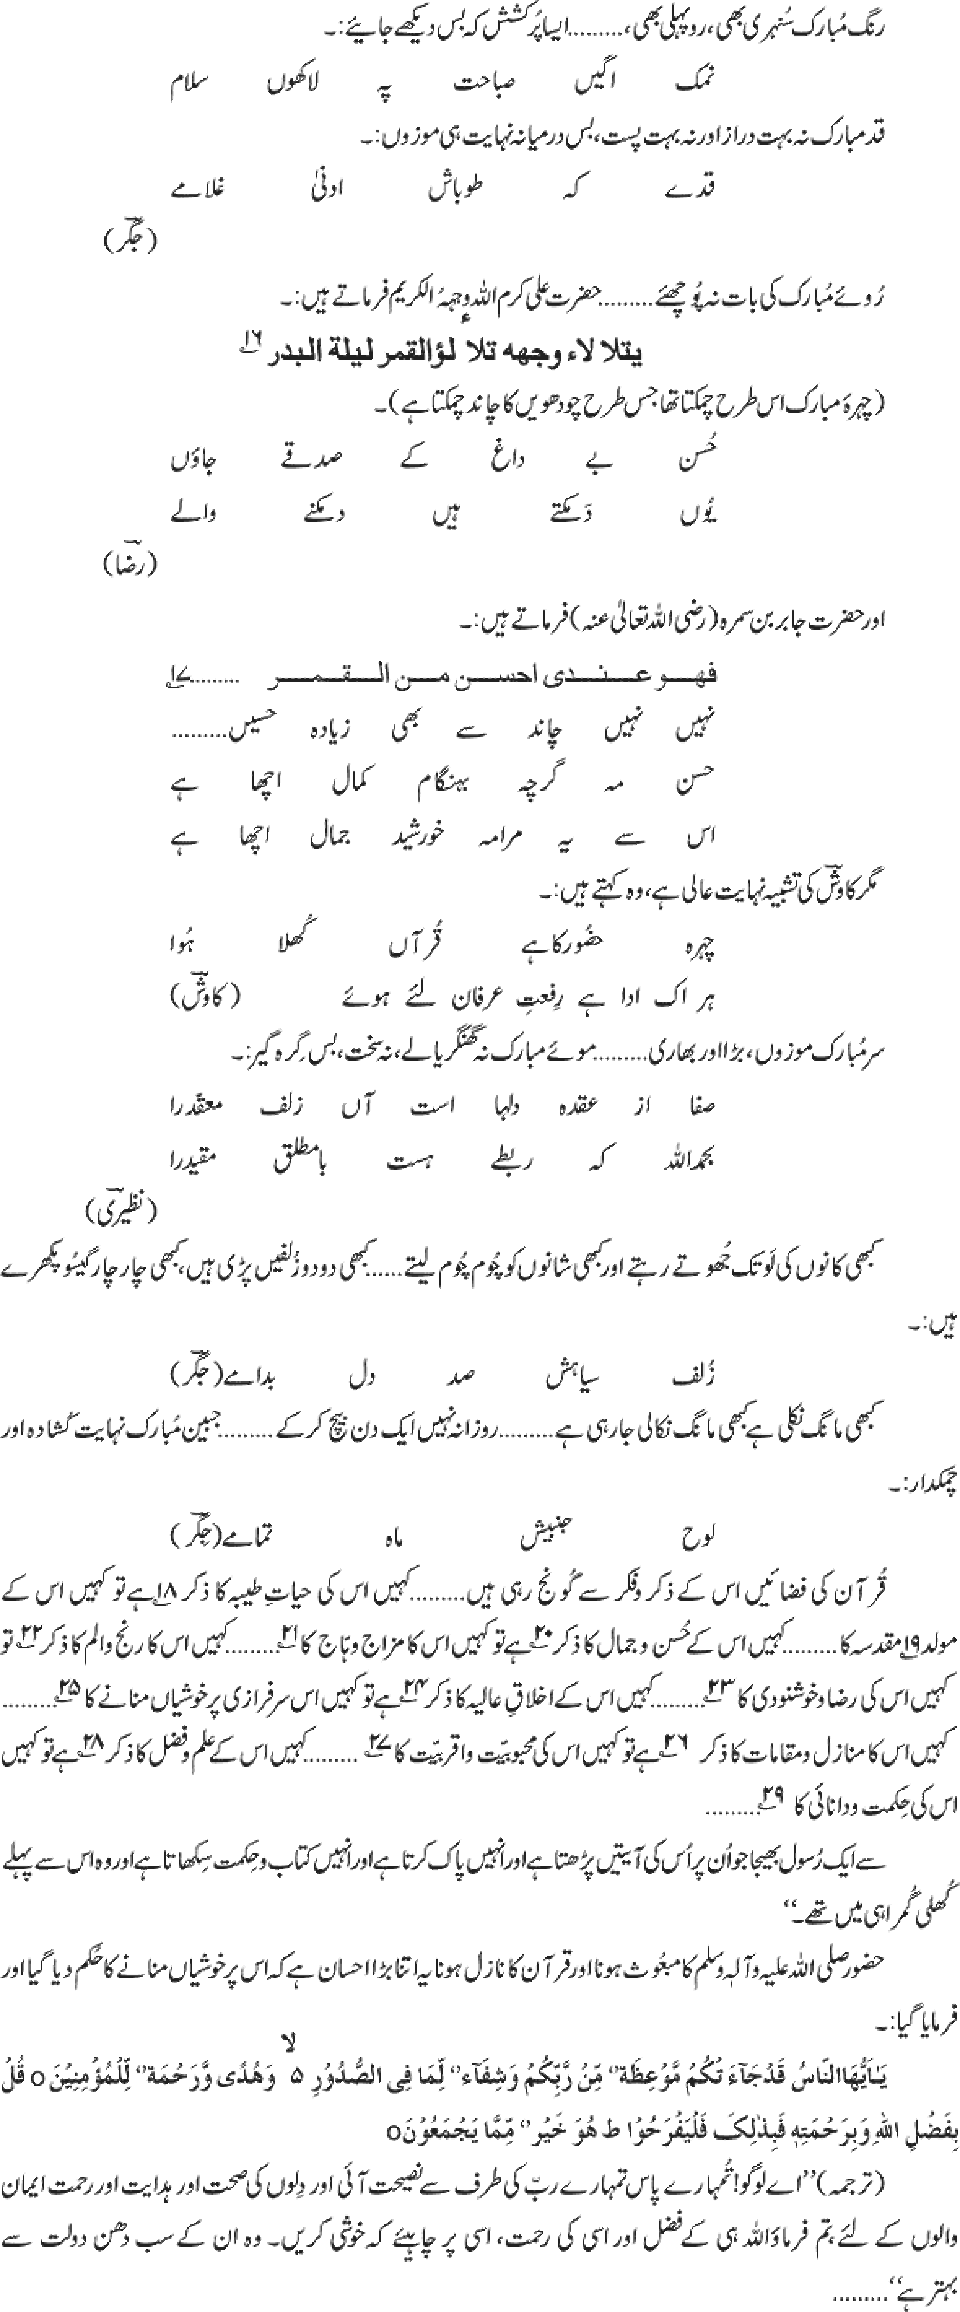 رنگ مُبارک سُنہری بھی، روپہلی بھی،.........ایسا پُر کشش کہ بس دیکھے جایئے:۔
نمک اگیں صباحت پہ لاکھوں سلام
قد مبارک نہ بہت دراز اور نہ بہت پست، بس درمیانہ نہایت ہی موزوں:۔
قدے کہ طوباش ادنیٰ غلامے
(جگر)
رُوئے مُبارک کی بات نہ پُوچھئے.........حضرت علی کرم اللہ وجہہُ الکریم فرماتے ہیں:۔
یتلا لاء وجھہ تلا لؤالقمر لیلة البدر ۱۶
(چہرۂ مبارک اس طرح چمکتا تھا جس طرح چودھویں کا چاند چمکتا ہے)۔
حُسن بے داغ کے صدقے جاؤں
یُوں دَمکتے ہیں دمکنے والے
(رضا)
اور حضرت جابر بن سمرہ (رضی اللہ تعالیٰ عنہ) فرماتے ہیں:۔
فھو عندی احسن من القمر .........۱۷
نہیں نہیں چاند سے بھی زیادہ حسیں.........
حسن مہ گرچہ بہنگام کمال اچھا ہے
اس سے یہ مرامہ خورشید جمال اچھا ہے
مگر کاوش کی تشبیہ نہایت عالی ہے، وہ کہتے ہیں:۔
چہرہ حضُور کا ہے قُرآں کُھلا ہُوا
ہر اک ادا ہے رِفعتِ عرفان لئے ہوئے (کاوش)
سر مُبارک موزوں، بڑا اور بھاری.........موئے مبارک نہ گھنگریالے، نہ سخت، بس گِرہ گیر:۔
صفا از عقدہ دلہا است آں زلف معقدرا
بحمداللہ کہ ربطے ہست بامطلق مقیدرا
(نظیری)
کبھی کانوں کی لَو تک جُھوتے رہتے اور کبھی شانوں کو چُوم چُوم لیتے......کبھی دو دو زُلفیں پڑی ہیں، کبھی چار چار گیسُو بکھرے
ہیں:۔
زُلف سیاہش صد دل بدامے (جگر)
کبھی مانگ نکلی ہے کبھی مانگ نکالی جا رہی ہے.........روزانہ نہیں ایک دن بیچ کر کے.........جبین مُبارک نہایت کُشادہ اور
چمکدار:۔
لوح جنبیش ماہ تمامے (جگر)
قُرآن کی فضائیں اس کے ذکر و فکر سے گُونج رہی ہیں.........کہیں اس کی حیاتِ طیبہ کا ذکر ۱۸ ہے تو کہیں اس کے
مولد ۱۹ مقدسہ کا.........کہیں اس کے حُسن و جمال کا ذکر ۲۰ ہے تو کہیں اس کا مزاج وہّاج کا ۲۱.........کہیں اس کا رنج والم کا ذکر ۲۲ تو
کہیں اس کی رضا و خوشنودی کا ۲۳.........کہیں اس کے اخلاقِ عالیہ کا ذکر ۲۴ ہے تو کہیں اس سرفرازی پر خوشیاں منانے کا ۲۵.........
کہیں اس کا منازل و مقامات کا ذکر ۲۶ ہے تو کہیں اس کی محبوبیّت و اقربیّت کا ۲۷ .........کہیں اس کے علم و فضل کا ذکر ۲۸ ہے تو کہیں
اس کی حِکمت و دانائی کا ۲۹.........
سے ایک رُسول بھیجا جو اُن پر اُس کی آیتیں پڑھتا ہے اور انہیں پاک کرتا ہے اور انہیں کتاب و حِکمت سِکھاتا ہے اور وہ اس سے پہلے
کُھلی گُمراہی میں تھے۔‘‘
حضور صلی اللہ علیہ وآلہٖ وسلم کا مبعُوث ہونا اور قرآن کا نازل ہونا یہ اتنا بڑا احسان ہے کہ اس پر خوشیاں منانے کا حُکم دیا گیا اور
فرمایا گیا:۔
یَـٰاَیُّھَا النَّاسُ قَدْجَآءَ تْکُمْ مَّوْعِظَة'' مِّنْ رَّبِّکُمْ وَشِفَآء'' لِّمَا فِی الصُّدُوْرِ لا ۵ وَھُدًی وَّرَحْمَة'' لِّلْمُؤْمِنِیْنَ o قُلْ
بِفَضْلِ اللّٰہِ وَبِرَحْمَتِہٖ فَبِذٰلِکَ فَلْیَفْرَحُوْا ط ھُوَ خَیْر'' مِّمَّا یَجْمَعُوْنَo
(ترجمہ) ’’اے لوگو! تُمہارے پاس تمہارے ربّ کی طرف سے نصیحت آئی اور دِلوں کی صحت اور ہدایت اور رحمت ایمان
والوں کے لئے، تم فرماؤ اللہ ہی کے فضل اور اسی کی رحمت، اسی پر چاہیئے کہ خوشی کریں۔ وہ ان کے سب دھن دولت سے
بہتر ہے‘‘.........